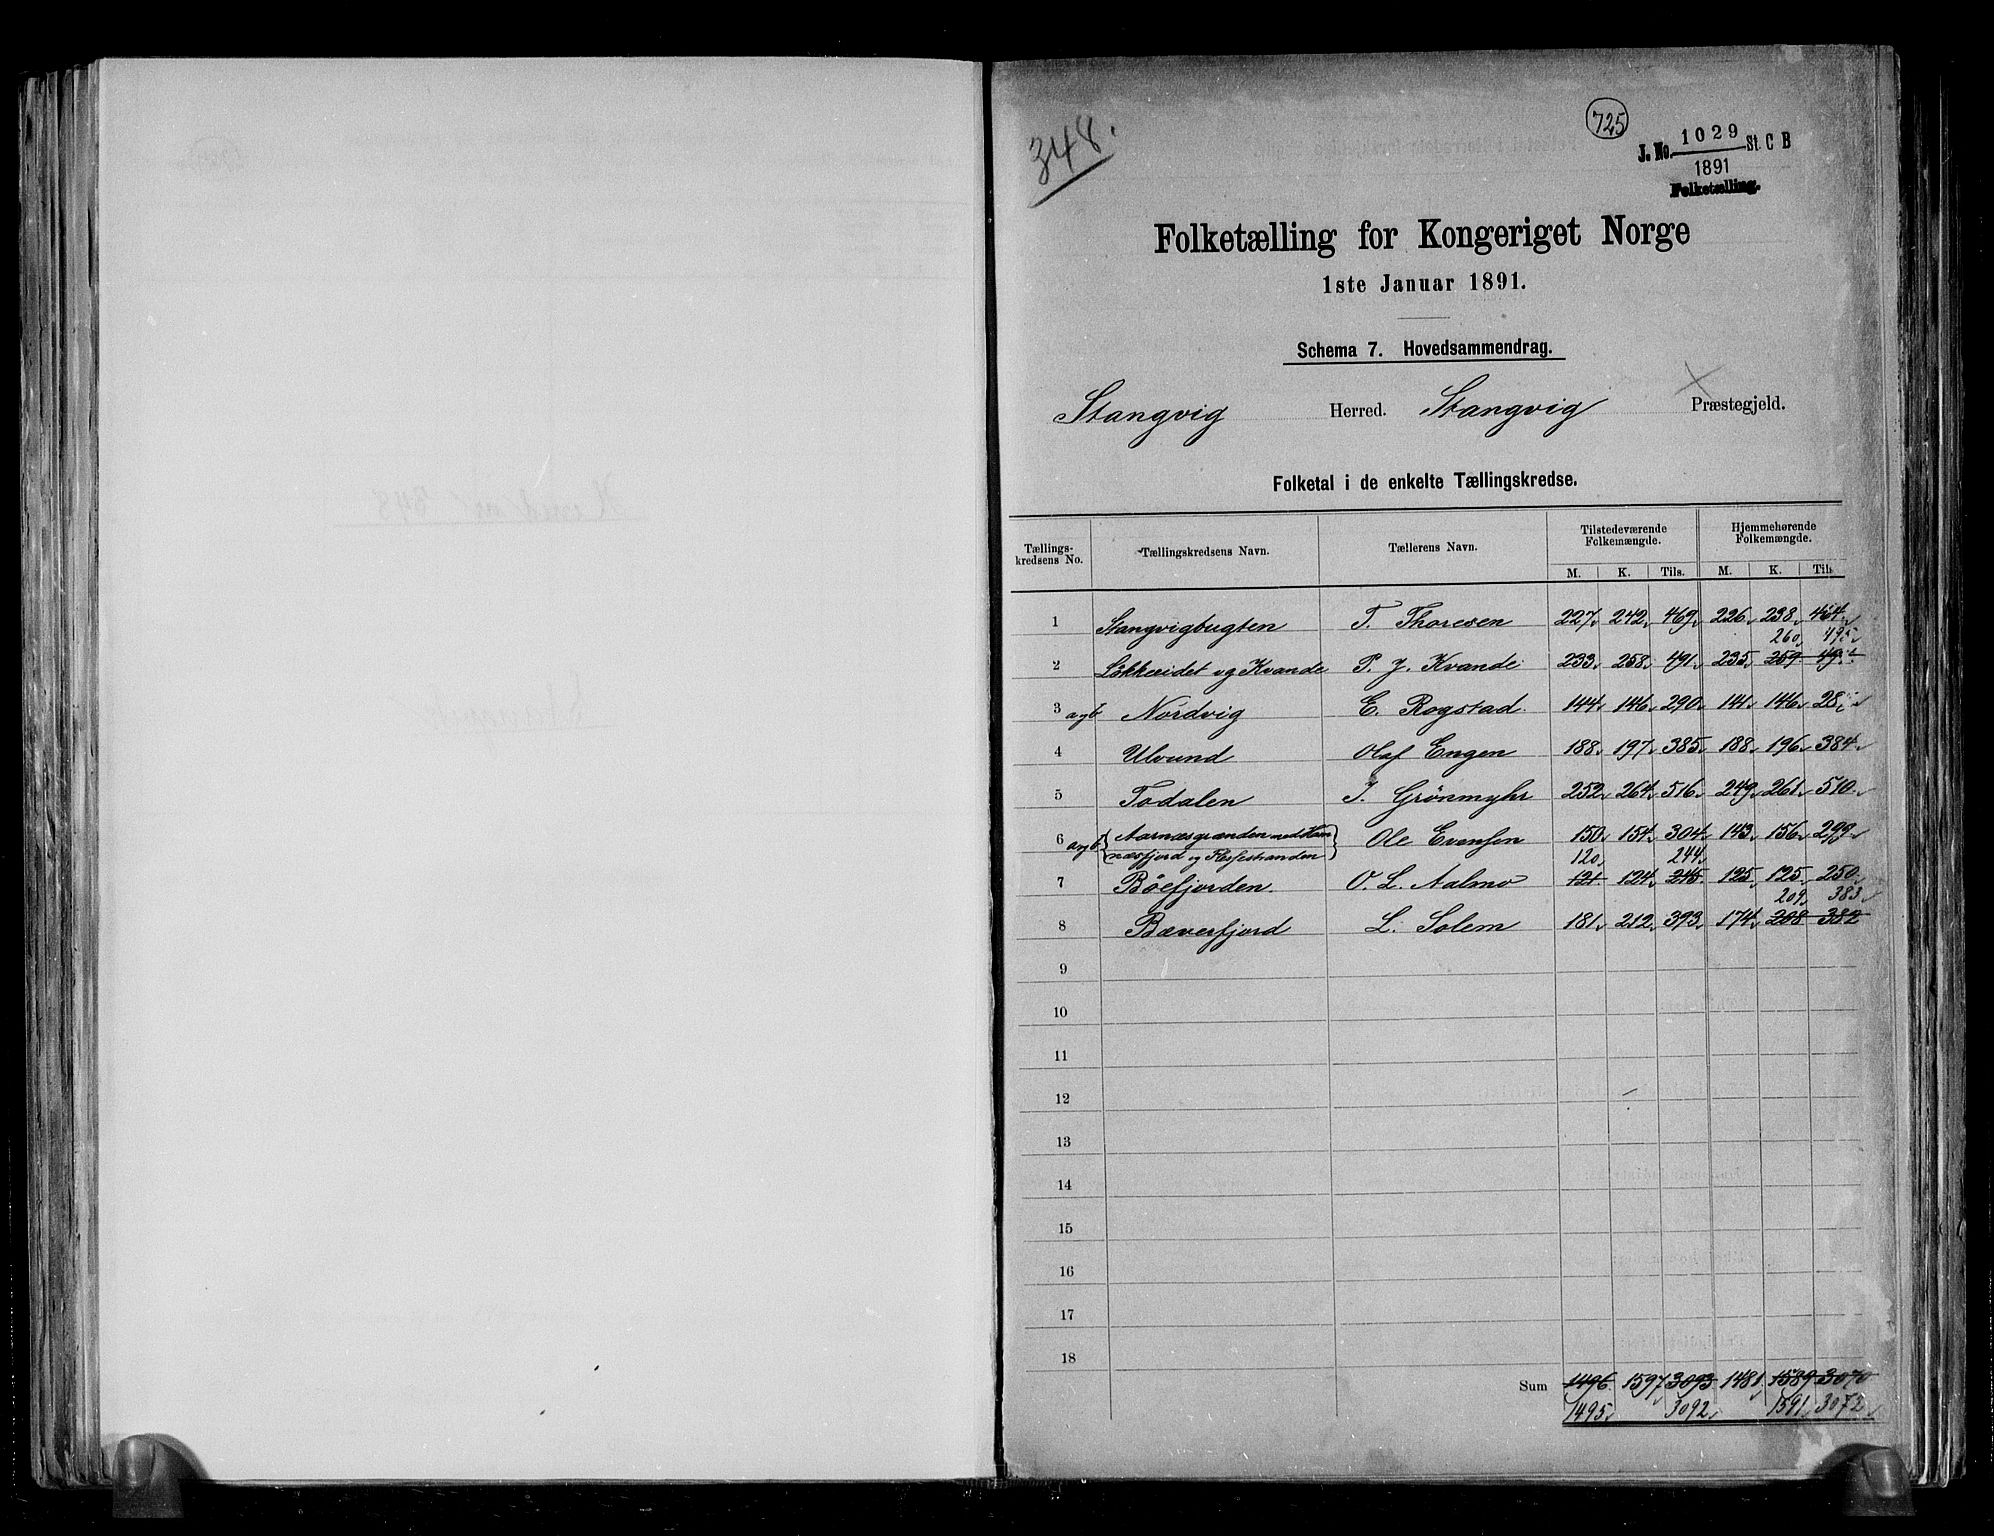 348.
725
J. No. 1029 St. C B
1891
Folketælling.
Folketælling for Kongeriget Norge
1ste Januar 1891.
Schema 7. Hovedsammendrag.
Stangvig Herred. Stangvig Præstegjeld.
Folketal i de enkelte Tællingskredse.
Tællings-kredsens No. Tællingskredsens Navn. Tællerens Navn. Tilstedeværende Folkemængde. Hjemmehørende Folkemængde.
M. K. Tils. M. K. Tils.
1 Stangvigbugten T. Thoresen 227 242 469 226 238 464
260 495
2 Løkkeeidet og Kvande P. J. Kvande 233 258 491 235 259
3 a og b Nordvig E. Rogstad 144 146 290 141 146
4 Ulvund Olaf Engen 188 197 385 188 196 384
5 Todalen J. Grønmyhr 252 264 516 249 261 510
6 a og b Aarnæsgrænden med Ham
næsfjord og Ole Evensen 150 154 304 143 156 299
120 244
7 Bøefjorden. O. L. Aalmo 121 124 245 125 125 250
209 383
8 Bæverfjord L. Solem 181 212 393 174 208 382
9
10
11
12
13
14
15
16
17
18
Sum 1496 1597 3093 1481 1589 3070
1495 3092 1591 3072